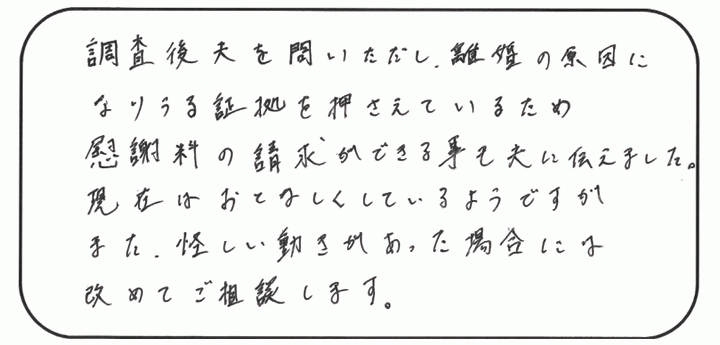 調査後夫を問いただし、離婚の原因に
なりうる証拠を押さえているため
慰謝料の請求ができる事も夫に伝えました。
現在はおとなしくしているようですが
また、怪しい動きがあった場合には
改めてご相談します。